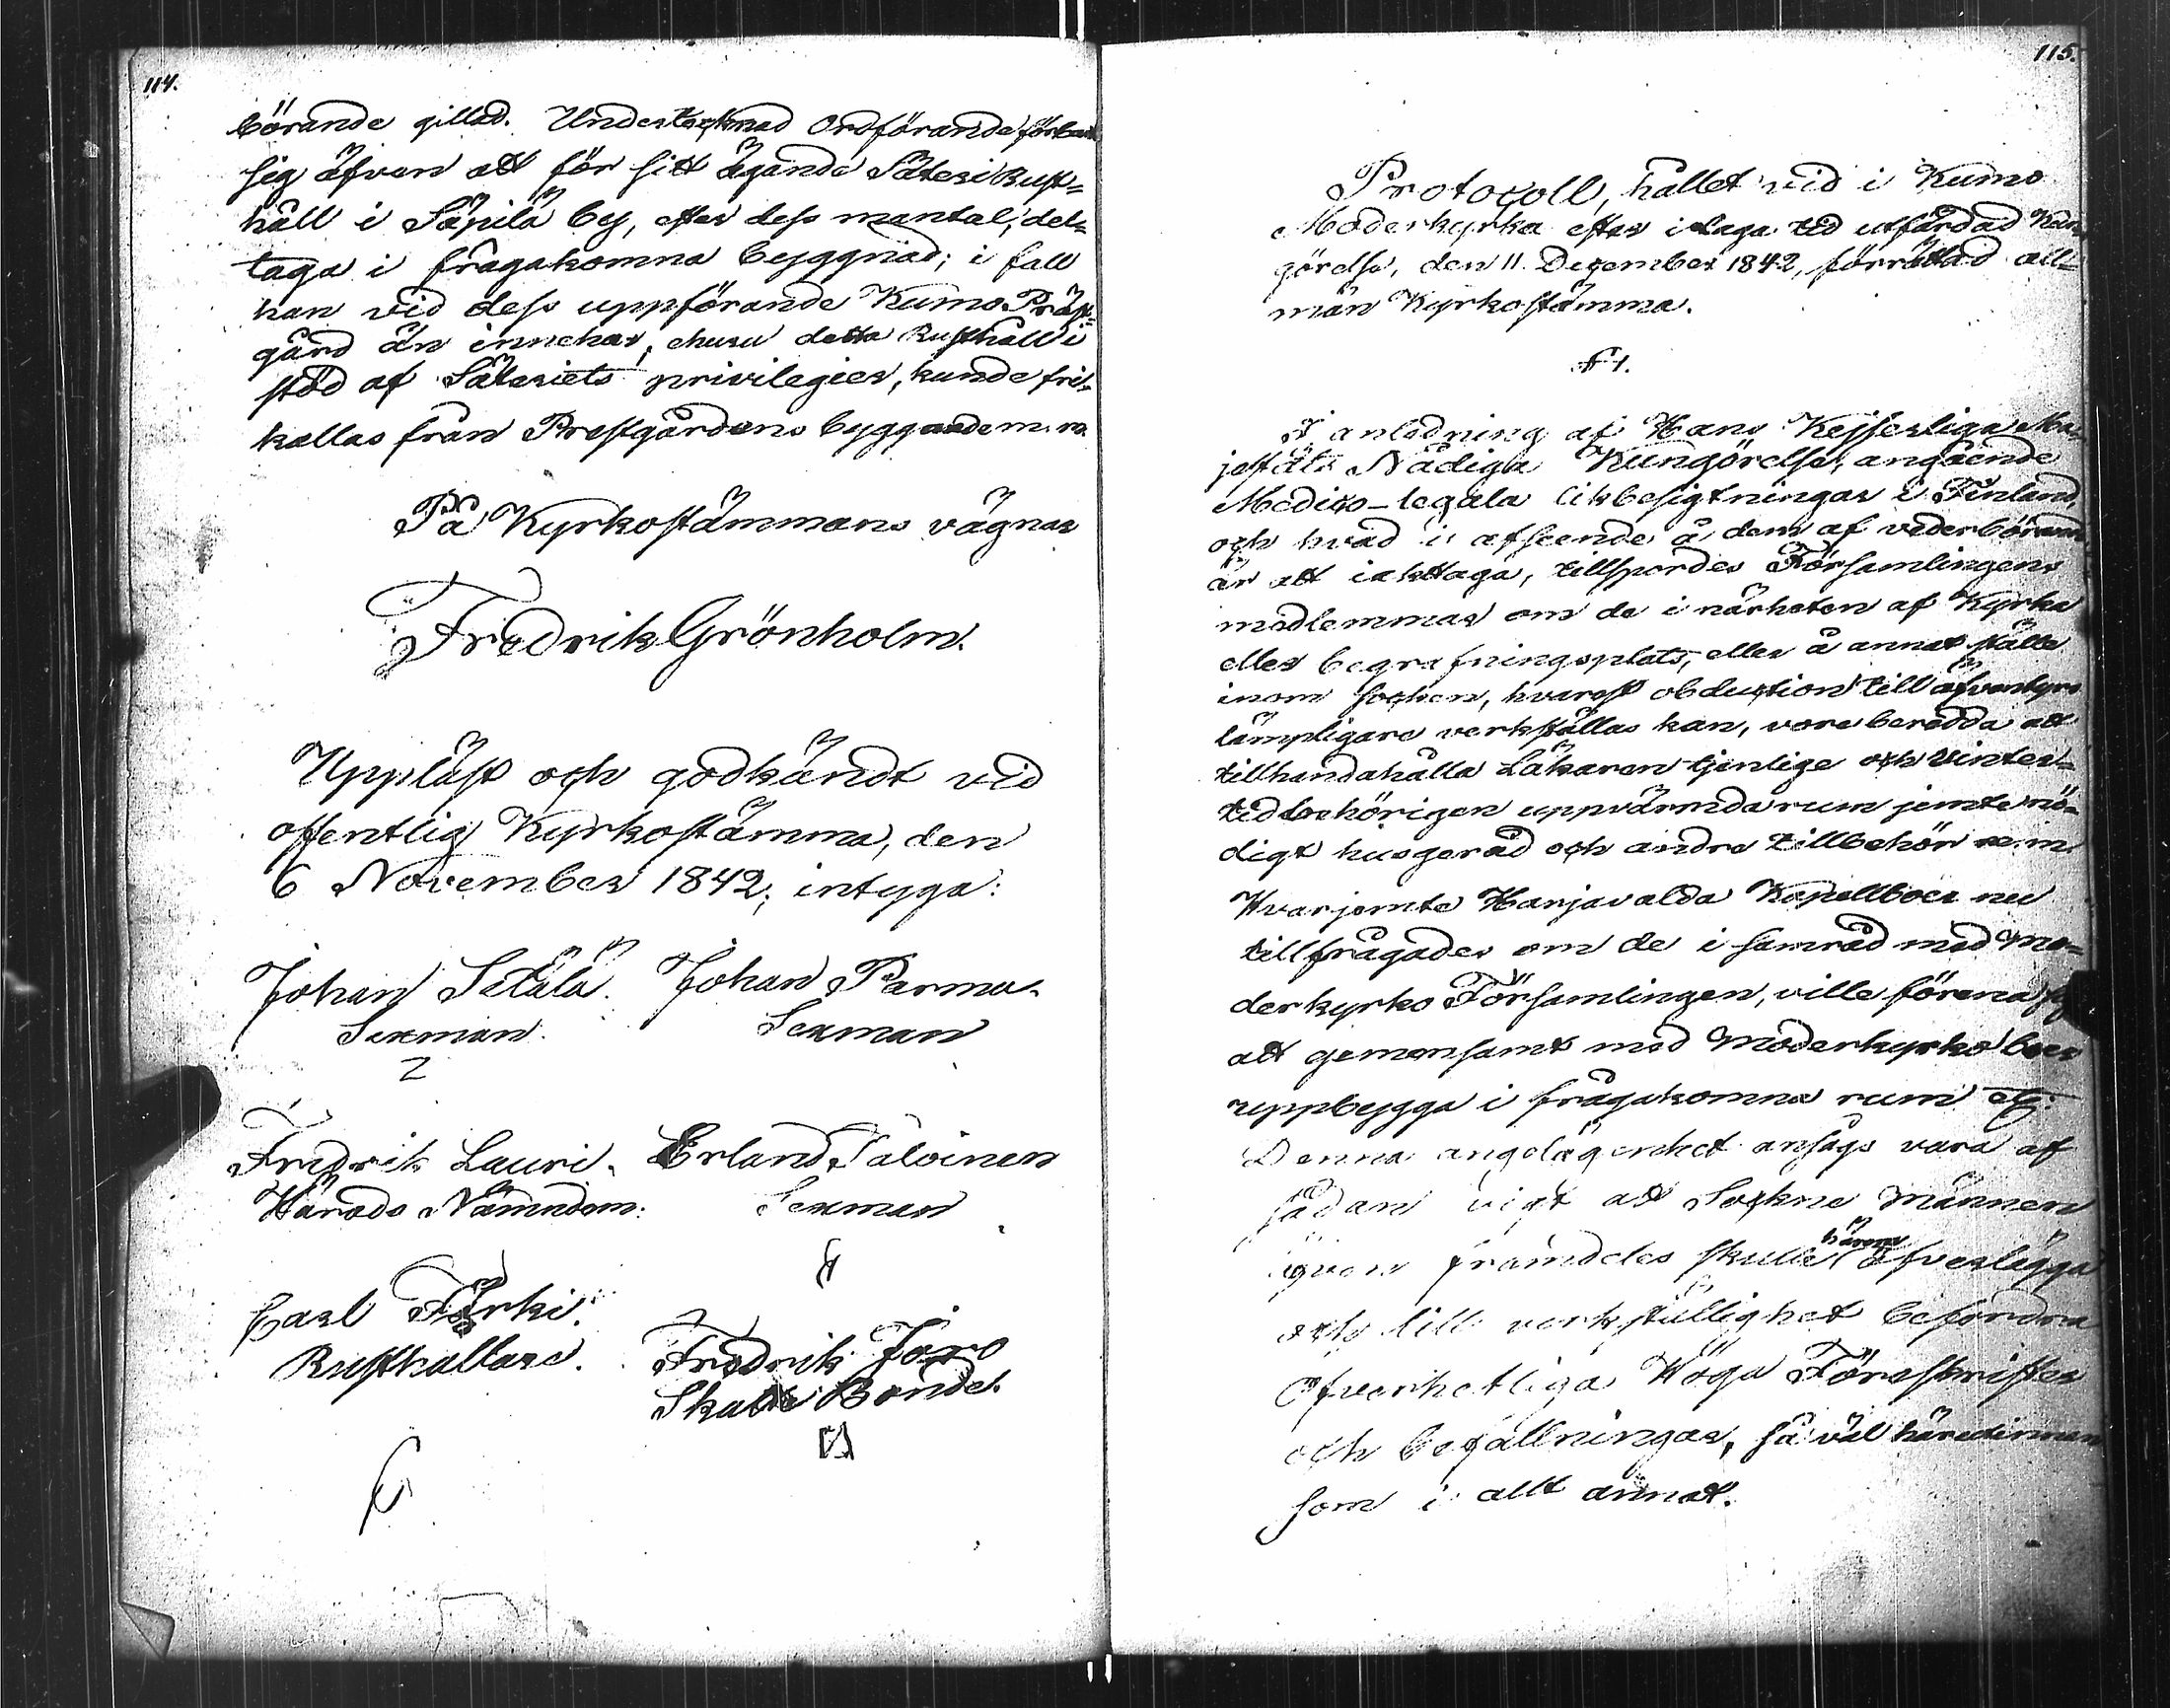 114.
börande gillad. Undertecknad Ordförande förband
sig äfven att för sitt ägande Säteri Rust=
håll i Säpilä by, efter dess mantal, del=
taga i frågakomna byggnad; i fall
han vid dess uppförande Kumo Präst=
gård än innehar, ehuru detta Rusthåll i
stöd af Säteriets privilegier, kunde fri=
kallas från Prestgårdens byggande m. m.
På Kyrkostämmans vägnar
Fredrik Grönholm.
Uppläst och godkändt vid
offentlig Kyrkostämma, den
6 November 1842; intyga:
Johan Setälä. Johan Parma.
Sexman. Sexman
Fredrik Lauri. Erland Taloinen
Härads Nämndem: Sexman
Carl Förki.
Rusthållare. Fredrik Jöro
Skatte Bonde.
115.
Protocoll, hållet vid i Kumo
Moderkyrka efter i laga tid utfärdad Kun=
görelse, den 11. December 1842, förrättad all=
män Kyrkostämma.
§ 1.
I anledning af Hans Kejserliga Ma=
jestäts Nådiga Kungörelse, angående
Medico-legala likbesigtningar i Finland,
och hvad i afseende å dem af vederbörande
är att iakttaga, tillspordes Församlingens
medlemmar om de i närheten af Kyrka
eller begrafningsplats, eller å annat ställe
inom socken, hvarest obduction till äfventyrs
lämpligare verkställas kan, vore beredda att
tillhandahålla Läkaren tjenlige och Vinter=
tid behörigen uppvärmda rum jemte nö=
digt husgeråd och andra tillbehör m. m.
Hvarjemte Harjavalda Kapellboer nu
tillfrågades om de i samråd med Mo=
derkyrko Församlingen, ville förena sig
att gemensamt med Moderkyrko boer
uppbygga i frågakomna rum etc:
Denna angelägenhet ansågs vara af
sådan vigt att Sockne Männen
även framdeles skulle härom öfverlägga
och till verkställighet befordra
Öfverhetliga Höga Föreskrifter
och befallningar, så väl häredinnan
som i allt annat.